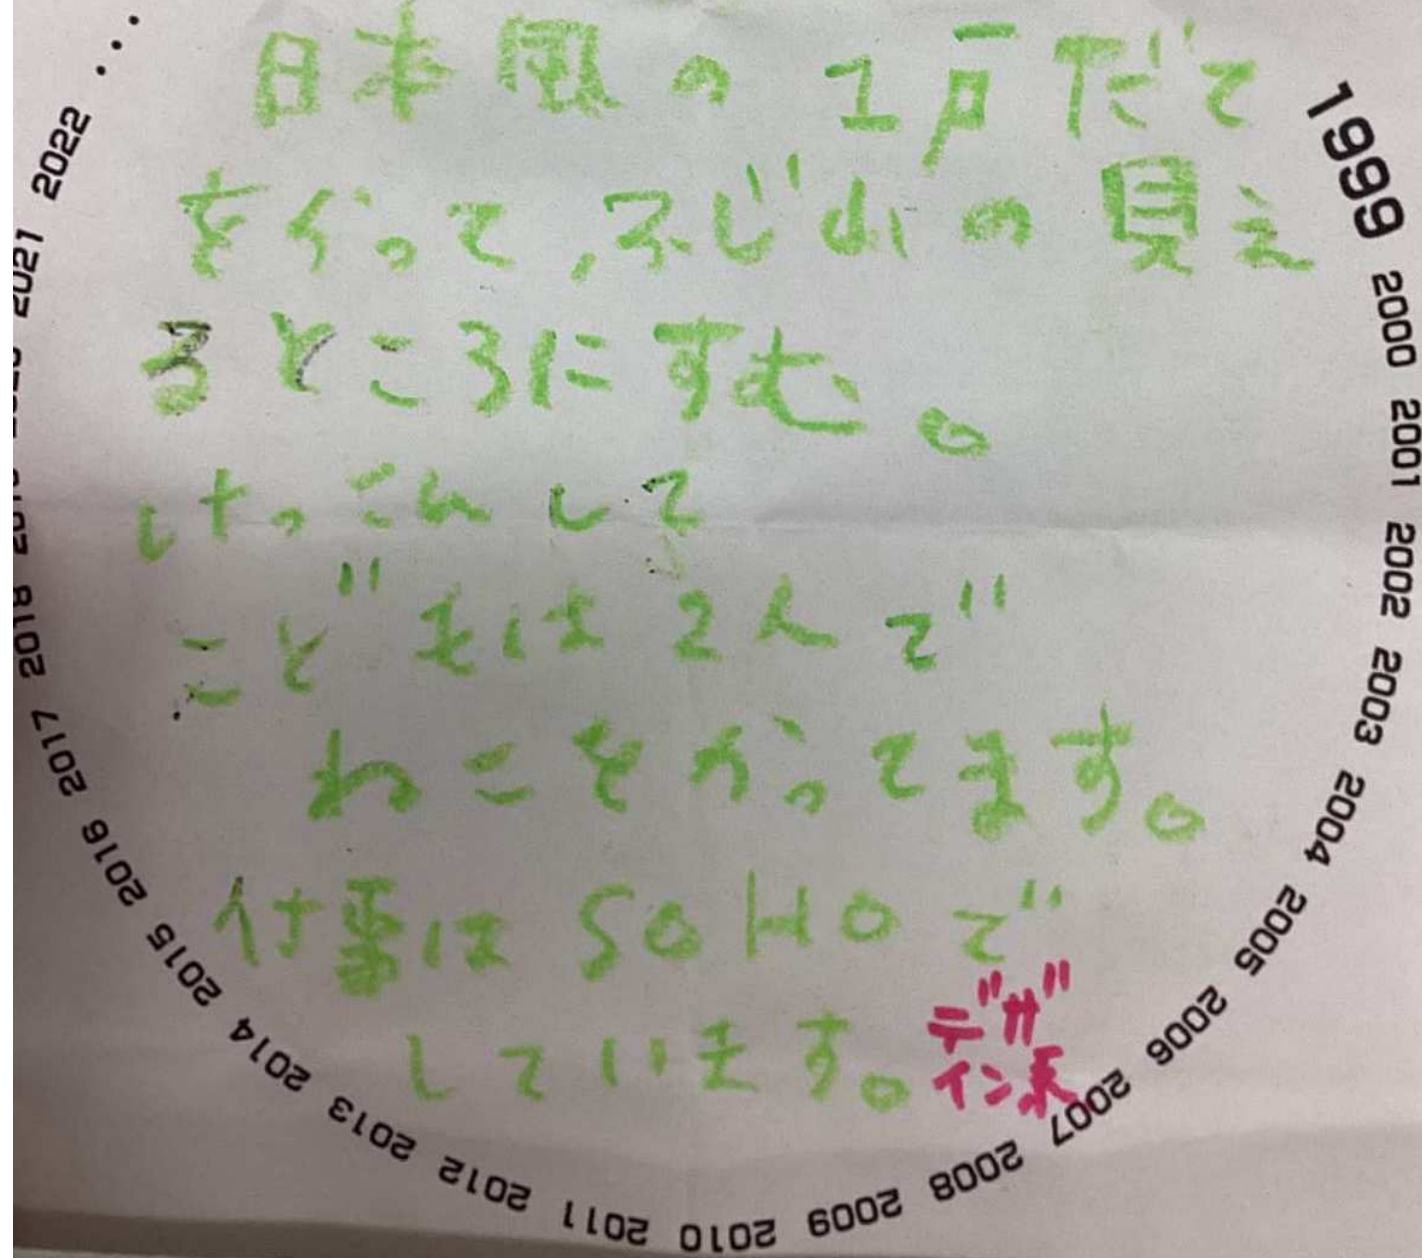 日本風の1戸だて
をかって、ふじ山の見え
るところにすむ。
けっこんして
こどもは2人で
ねこをかってます。
仕事はSOHOで
しています。
デザ
イン系
1999 2000 2001 2002 2003 2004 2005 2006 2007 2008 2009 2010 2011 2012 2013 2014 2015 2016 2017 2018
2021 2022 ....